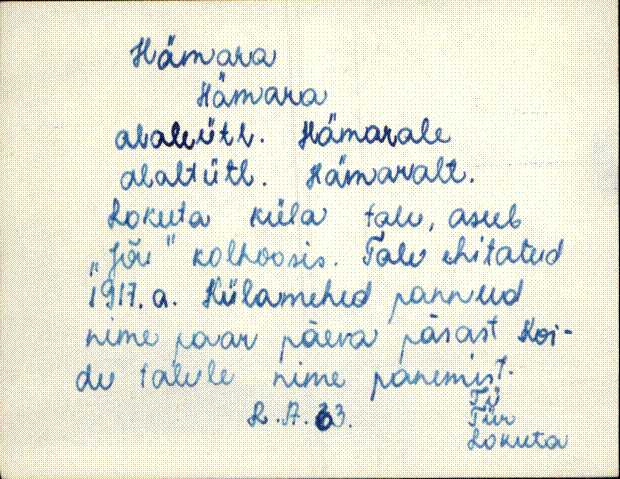 Hämara
Hämara
alaleütl. Hämarale
alaltütl. Hämaralt.
Lokuta küla talu, asub
"Jõu" kolhoosis. Talu ehitatud
1917. a. Külamehed pannud
nime paar päeva päsast Koi-
du talule nime panemist.
L. A. 63.
Tü
Tür
Lokuta